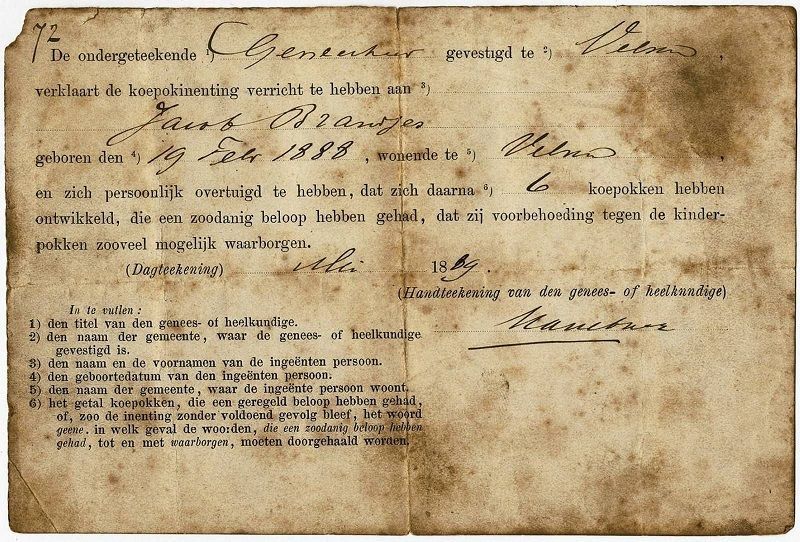 72
De ondergeteekende 1) Geneesheer gevestigd te 2) Velsen,
verklaart de koepokinenting verricht te hebben aan 3)
Jacob Brantjes
geboren den 4) 19 Febr 1888, wonende te 5) Velsen,
en zich persoonlijk overtuigd te hebben, dat zich daarna 6) 6 koepokken hebben
ontwikkeld, die een zoodanig beloop hebben gehad, dat zij voorbehoeding tegen de kinder-
pokken zooveel mogelijk waarborgen.
(Dagteekening) Mei 1889.
(Handteekening van den genees- of heelkundige)
In te vullen:
1) den titel van den genees- of heelkundige.
2) den naam der gemeente, waar de genees- of heelkundige
gevestigd is.
3) den naam en de voornamen van de ingeënten persoon.
4) den geboortedatum van den ingeënten persoon.
5) den naam der gemeente, waar de ingeënte persoon woont.
6) het getal koepokken, die een geregeld beloop hebben gehad,
of, zoo de inenting zonder voldoend gevolg bleef, het woord
geene. in welk geval de woorden, die een zoodanig beloop hebben
gehad, tot en met waarborgen, moeten doorgehaald worden.